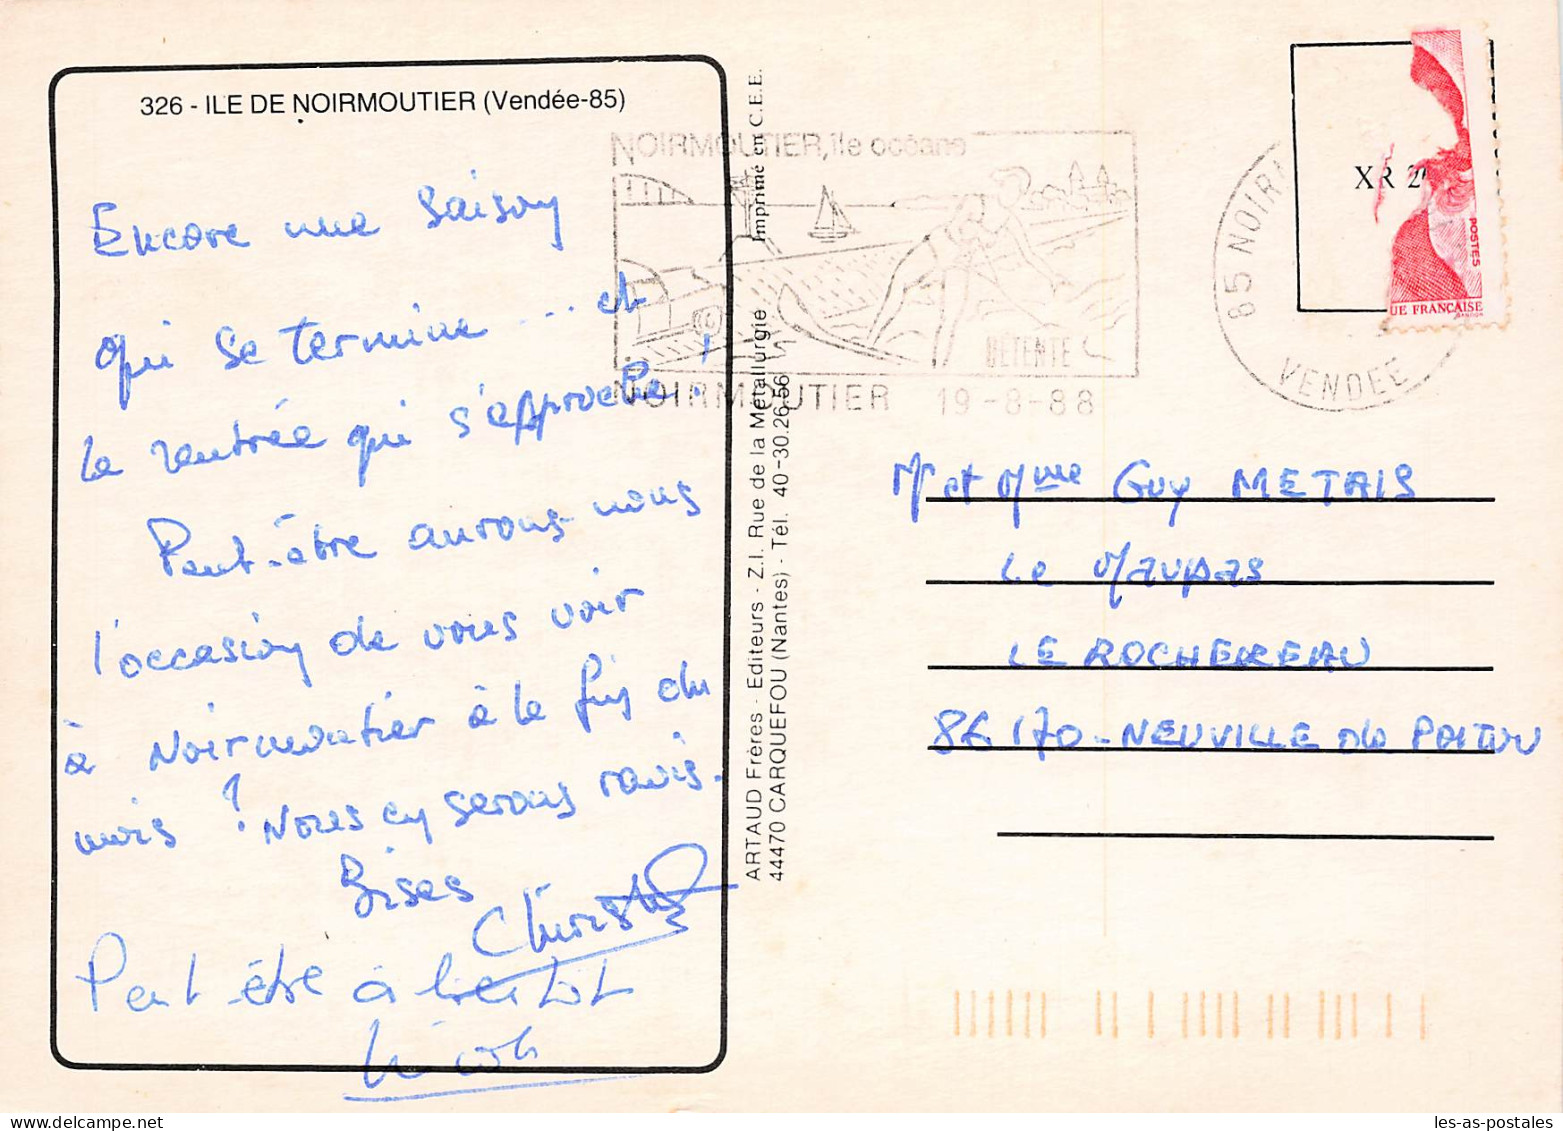 326 - ILE DE NOIRMOUTIER (Vendée-85)
Encore une saison
qui se termine... et
la rentrée qui s'approche !
Peut-être aurons nous
l'occasion de vous voir
à Noirmoutier à la fin du
mois ? Nous en serons ravis.
Bises
Peut être à bientôt
ARTAUD Frères - Editeurs - Z.I. Rue de la Métallurgie Imprimé en C.E.E.
44470 CARQUEFOU (Nantes) - Tél. 40-30.26.56
NOIRMOUTIER, île océane
DÉTENTE
NOIRMOUTIER 19-8-88
85 NOIRM
VENDEE
XR 2
POSTES
UE FRANCAISE
Mr et Mme Guy METAIS
Le Maupas
LE ROCHEREAU
86170 - NEUVILLE de POITOU
les-as-postales